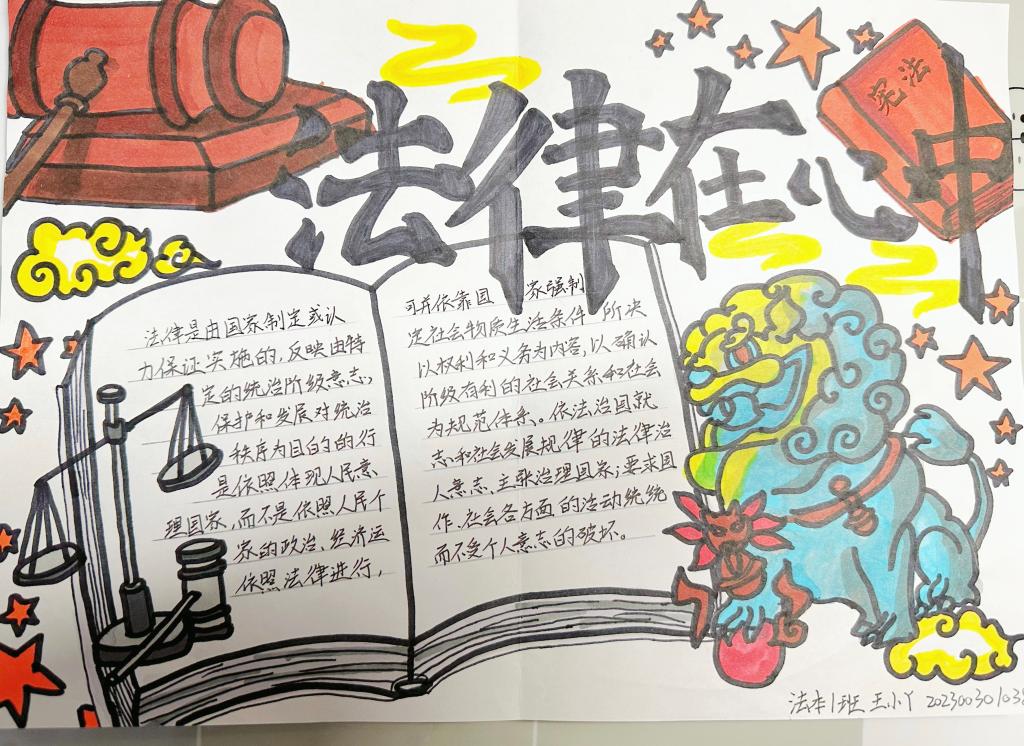 法律在心中
宪法
法律是由国家制定或认
力保证实施的,反映由特
定的统治阶级意志,
保护和发展对统治
秩序为目的的行
是依照体现人民意
理国家,而不是依照人民个
家的政治、经济运
依照法律进行,
可并依靠国 家强制
定社会物质生活条件 所决
以权利和义务为内容,以确认
阶级有利的社会关系和社会
为规范体系。依法治国就
志和社会发展规律的法律治
人意志、主张治理国家;要求国
作、社会各方面的活动统统
而不受个人意志的破坏。
法本1班 王小丫 202300301038